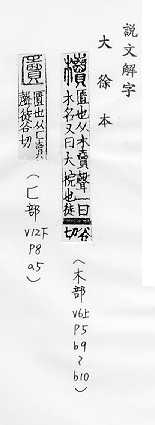 説文解字
大徐本
櫝 匱也从木𧶠聲一曰
木名又曰大梡也徒
谷切
（木部
v6上
P5
b9
?
b10）
匵 匱也从匚𧶠
聲徒谷切
（匚部
v12下
P8
a5）